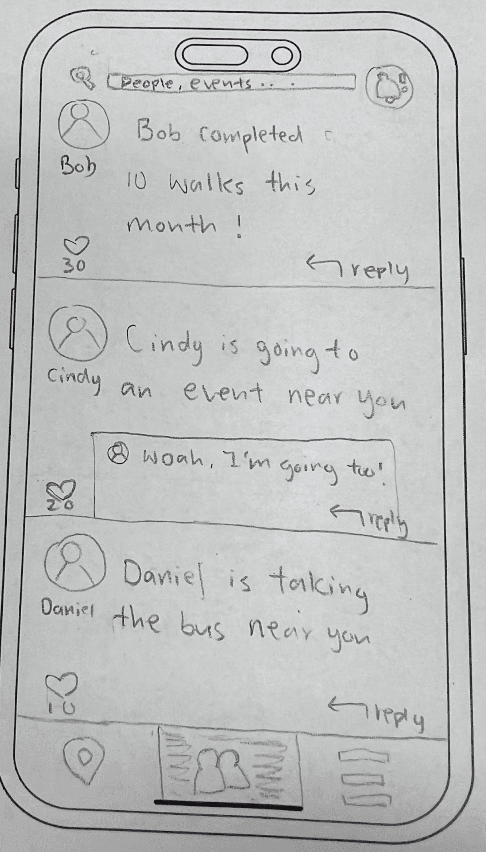 People, events....
Bob
Bob completed
10 walks this
month!
30
reply
Cindy
Cindy is going to
an event near you
Woah, I'm going too!
20
reply
Daniel
Daniel is taking
the bus near you
10
reply